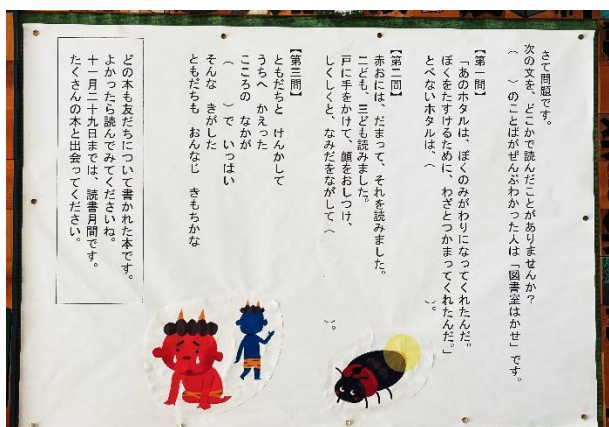 さて問題です。
次の文を、どこかで読んだことがありませんか?
(　　)のことばがぜんぶわかった人は「図書室はかせ」です。
【第一問】
「あのホタルは、ぼくのみがわりになってくれたんだ。
ぼくをたすけるために、わざとつかまってくれたんだ。」
とべないホタルは、(　　　　　　)。
【第二問】
赤おには、だまって、それを読みました。
二ども、三ども読みました。
戸に手をかけて、顔をおしつけ、
しくしくと、なみだをながして(　　　　　　)。
【第三問】
ともだちと けんかして
うちへ かえった
こころの なかが
(　　)で いっぱい
そんな きがした
ともだちも おんなじ きもちかな
どの本も友だちについて書かれた本です。
よかったら読んでみてくださいね。
十一月二十九日までは、読書月間です。
たくさんの本と出会ってください。